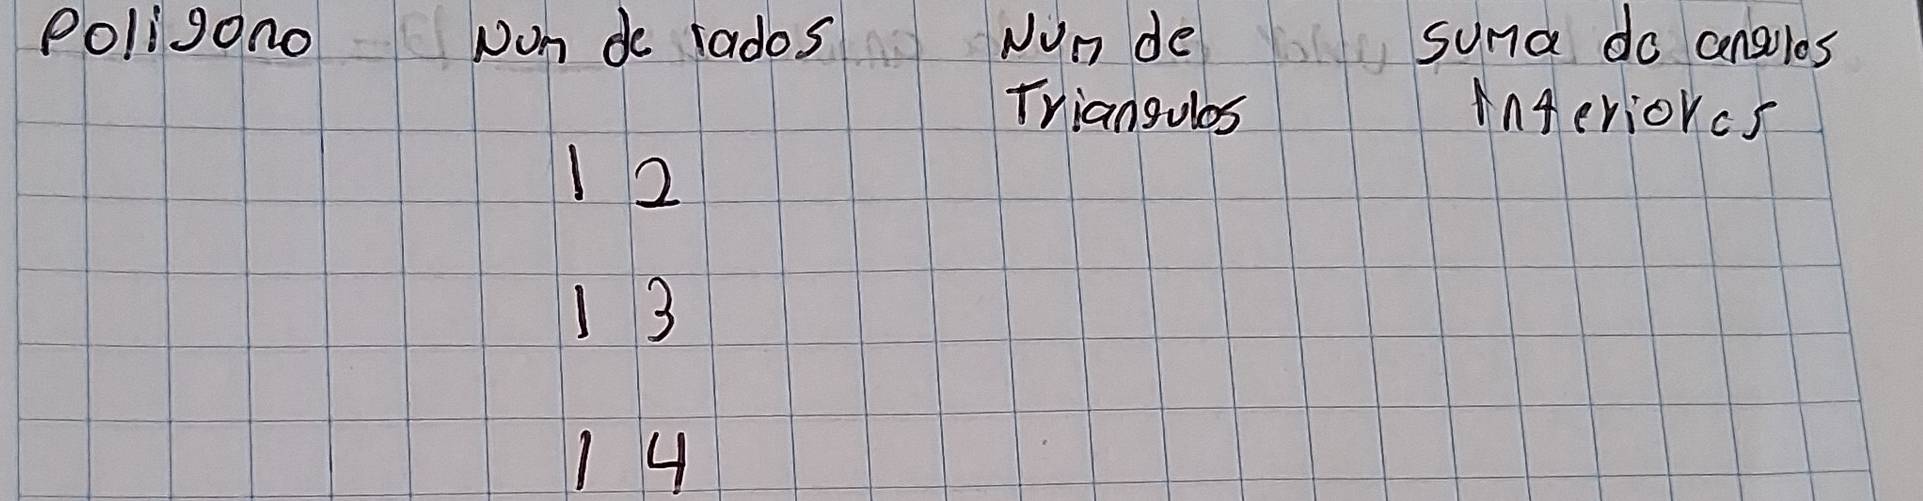 Poligono Num de lados Num de Triangulos suma de angulos Interiores
12
13
14